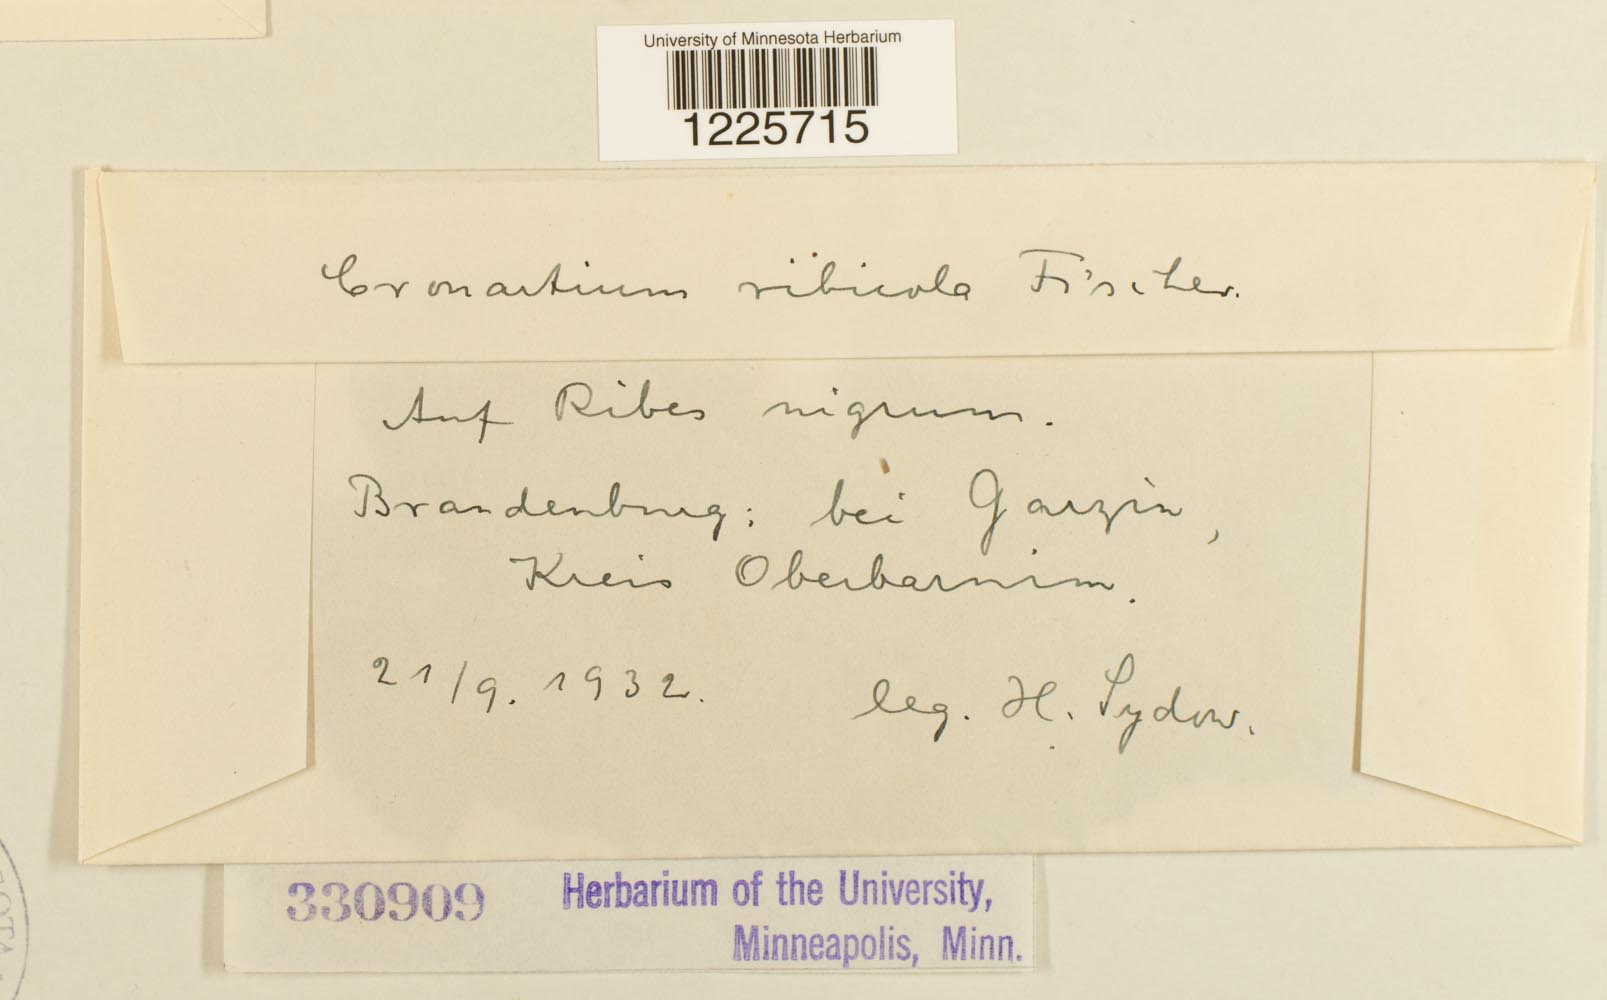 University of Minnesota Herbarium
1225715
Cronartium ribicola Fischer.
Auf Ribes nigrum.
Brandenburg: bei Garzin,
Kreis Oberbarnim.
21/9. 1932. leg. H. Sydow.
330909 Herbarium of the University,
Minneapolis, Minn.